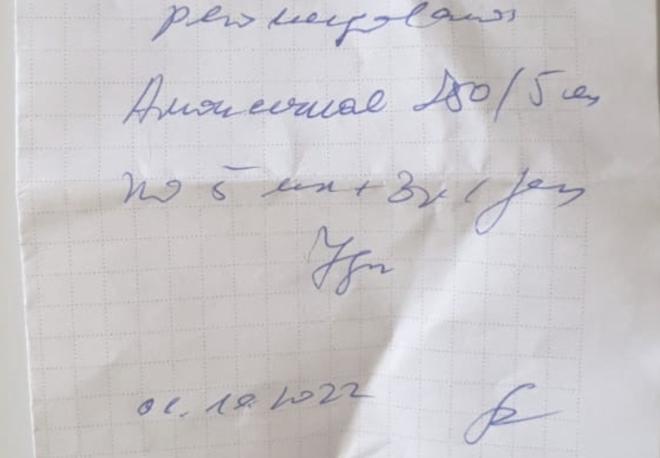 рекомендовано
Амоксициллин 250/5 мл
по 5 мл + 3р / день
7 дн
10.2022